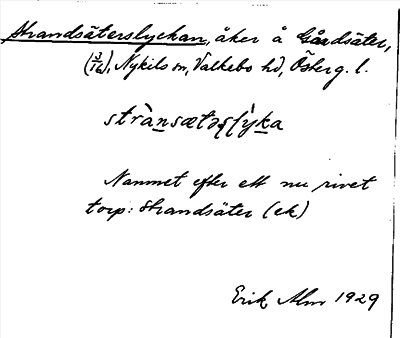 Strandsäterslyckan, åker å Gårdsäter,
(3/16), Nykils sn, Valkebo hd, Östergg. l.
strànsætəsl̥ỳka
Namnet efter ett nu rivet
torp: Strandsäter (ek)
Erik Alm 1929